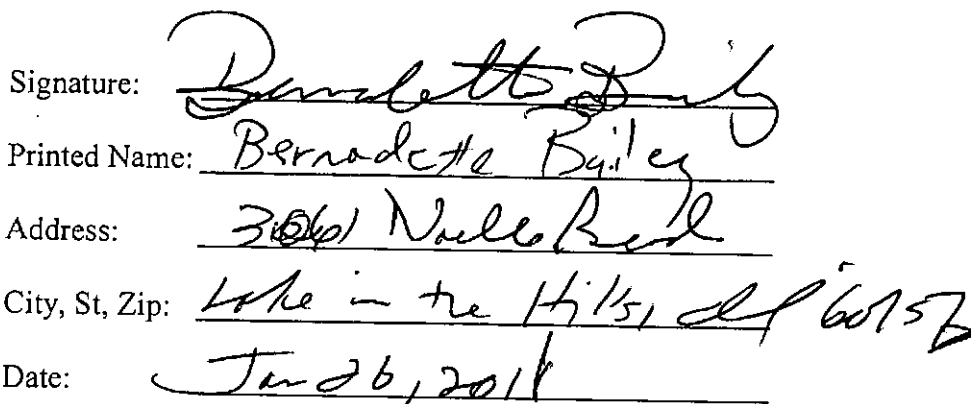 Signature: Bernadette Bailey
Printed Name: Bernadette Bailey
Address: Noelle Bend
City, St, Zip: Lake in the Hills, Il 60156
Date: Jan 26, 2011